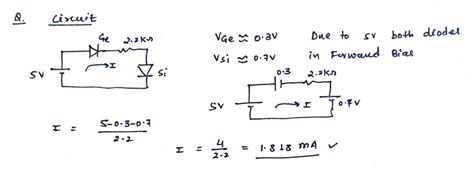 Q. Circuit
Ge 2.2KΩ
5V I Si
VGe ≈ 0.3V Due to 5V both diodes
VSi ≈ 0.7V in Forward Bias
0.3 2.2KΩ
5V I 0.7V
I = 5-0.3-0.7 / 2.2
I = 4/2.2 = 1.818 mA ✓